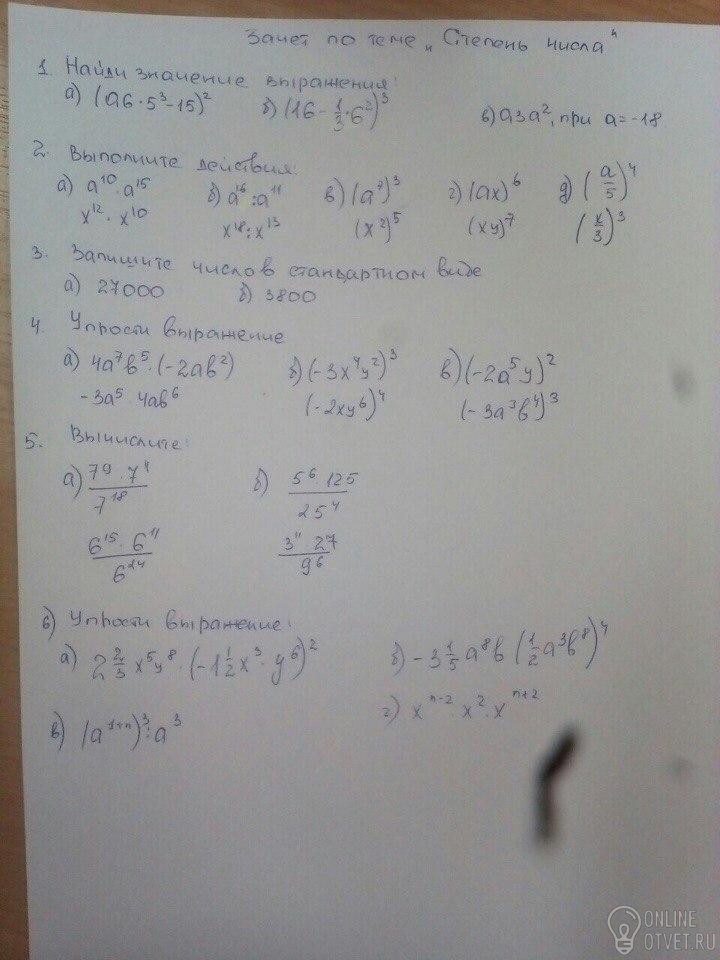 Зачет по теме „Степень числа"
1. Найди значение выражения:
а) (a6 · 5³ - 15)² б) (16 - 1/3 · 6²)³ в) a3a², при a = -18
2. Выполните действия:
а) a¹⁰ · a¹⁵ б) a¹⁶ : a¹¹ в) (a⁷)³ г) (ax)⁶ д) (a/5)⁴
x¹² · x¹⁰ x¹⁸ : x¹³ (x²)⁵ (xy)⁷ (x/3)³
3. Запишите число в стандартном виде
а) 27000 б) 3800
4. Упрости выражение
а) 4a⁷b⁵ · (-2ab²) б) (-3x⁴y²)³ в) (-2a⁵y)²
-3a⁵ · 4ab⁶ (-2xy⁶)⁴ (-3a³b⁴)³
5. Вычислите:
а) 7⁹ · 7¹¹ / 7¹⁸ б) 5⁶ · 125 / 25⁴
6¹⁵ · 6¹¹ / 6²⁴ 3¹¹ · 27 / 9⁶
6) Упрости выражение:
а) 2 2/3 x⁵y⁸ · (-1 1/2 x³ · y⁶)² б) -3 1/5 a⁸b (1/2 a³b⁸)⁴
в) (a¹⁺ⁿ)³ : a³ г) xⁿ⁻² · x² · xⁿ⁺²
ONLINE
OTVET.RU